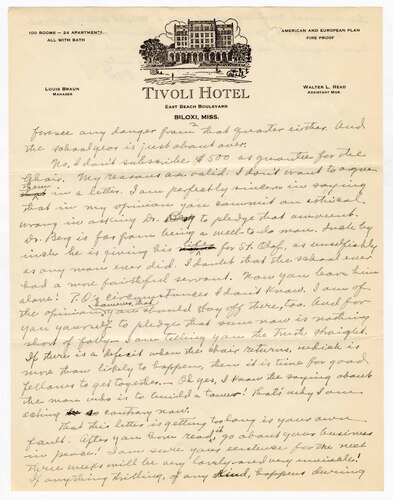 100 ROOMS — 24 APARTMENTS
ALL WITH BATH
AMERICAN AND EUROPEAN PLAN
FIRE PROOF
LOUIS BRAUN
MANAGER
TIVOLI HOTEL
EAST BEACH BOULEVARD
BILOXI, MISS.
WALTER L. READ
ASSISTANT MGR.
foresee any danger from that quarter either. And
the schoolyear is just about over.
No, I don't subscribe $500 as guarantee for the
Choir. My reasons are valid. I don't want to argue
them in a letter. I am perfectly sincere in saying
that in my opinion you commit an ethical
wrong in asking Dr. Berg to pledge that amount.
Dr. Berg is far from being a well-to-do man. Inch by
inch he is giving his life for St. Olaf, as unselfishly
as any man ever did. I doubt that the school ever
had a more faithful servant. Now you leave him
alone! T.O's circumstances I don't know. I am of
the opinion, however, that you should stay off there, too. And for
you yourself to pledge that sum now is nothing
short of folly. I am telling you the truth straight.
If there is a deposit when the choir returns, which is
more than likely to happen, then it is time for good
fellows to get together. — Oh yes, I know the saying about
the man who is to build a tower! That's why I am
acting so contrary now.
That this letter is getting too long is your own
fault. After you have read it go about your business
in peace! I am sure your existence for the next
three weeks will be very lovely and very
If anything thrilling, of any kind, happens during